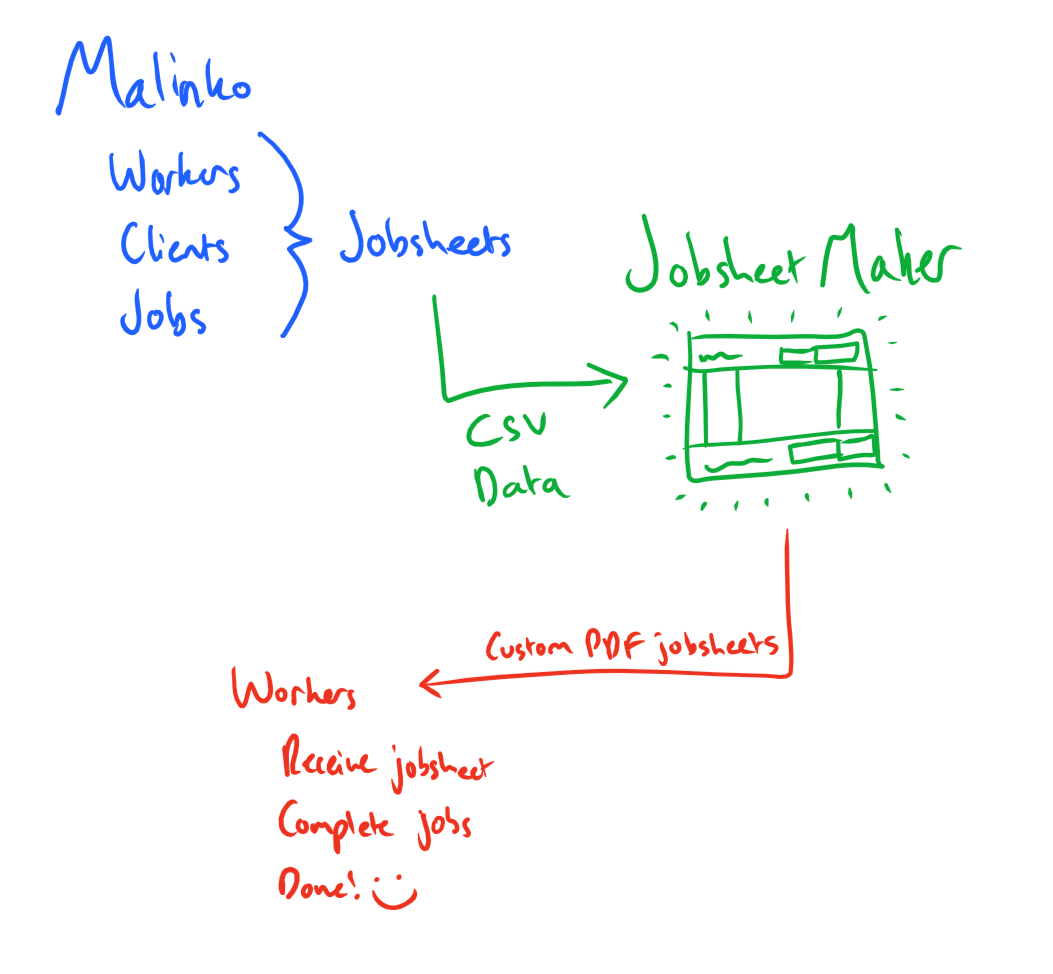 Malinko
Workers
Clients
Jobs
Jobsheets
Jobsheet Maker
CSV
Data
Custom PDF jobsheets
Workers
Receive jobsheet
Complete jobs
Done!